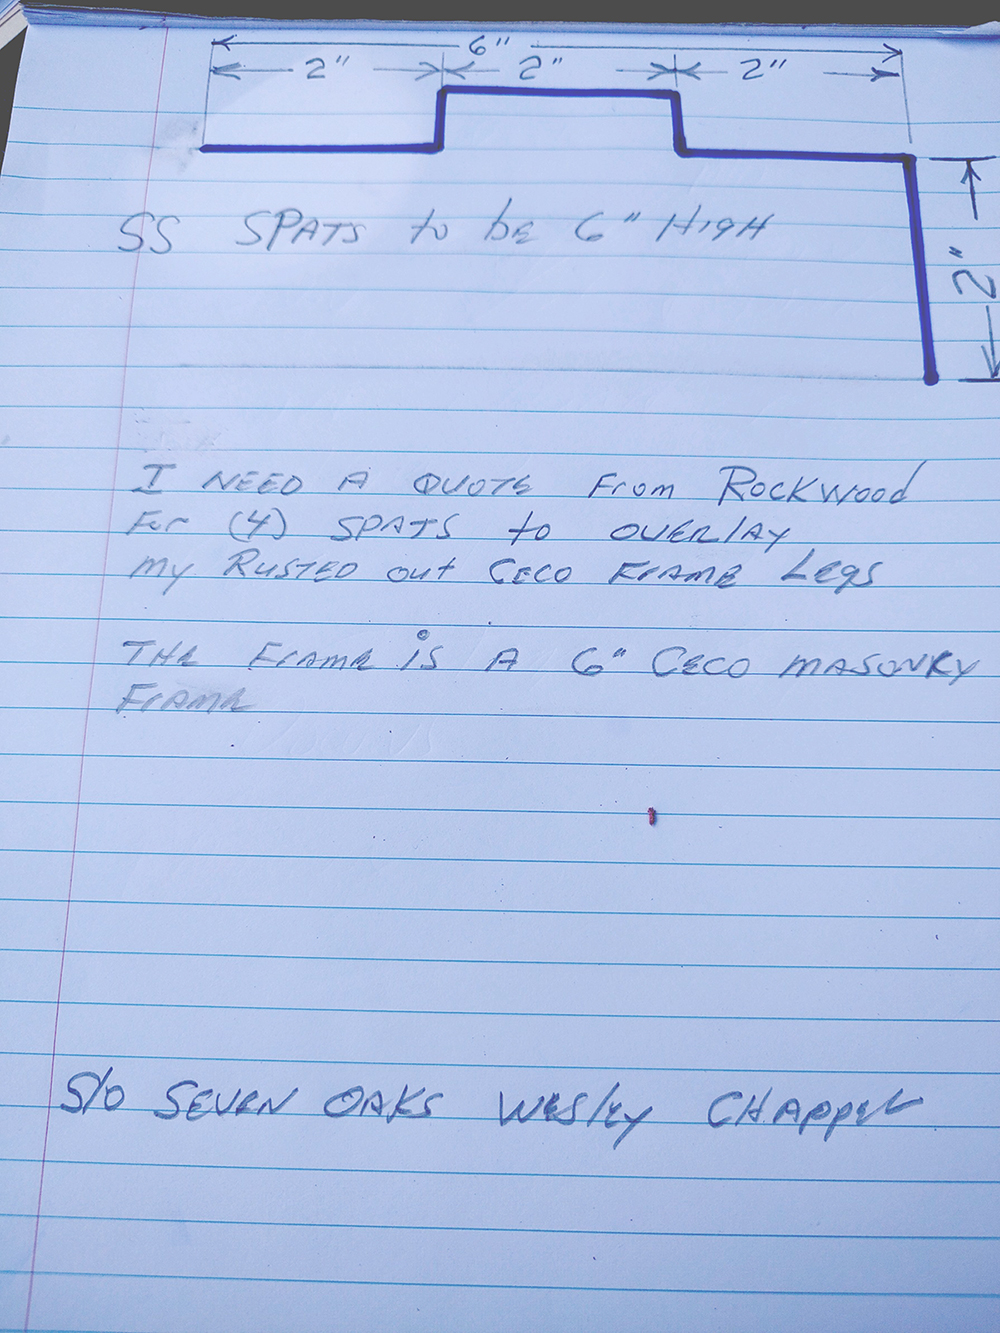 6"
2" 2" 2"
2"
SS SPATS to be 6" HIGH
I NEED A QUOTE From ROCKWOOD
For (4) SPATS to OVERLAY
my RUSTED out CECO FRAME LEgs
THE FRAME iS A 6" CECO MASONRY
FRAME
S/O SEVEN OAKS WESlEy CHAppEL